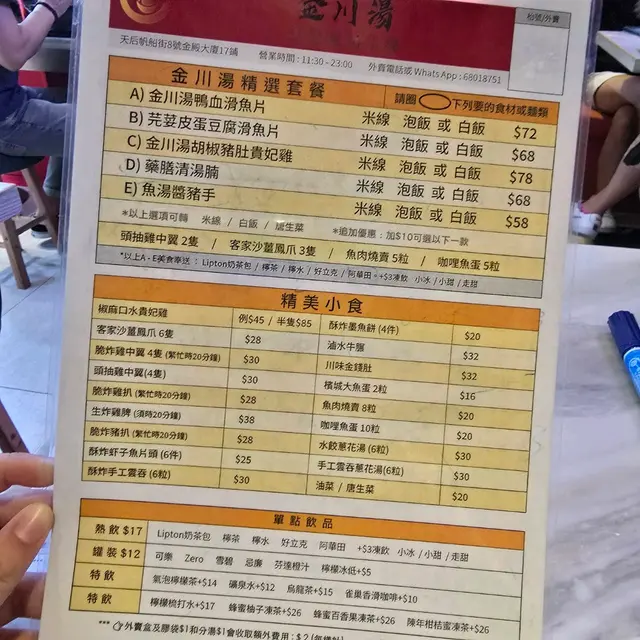 金川湯
枱號/外賣
天后帆船街8號金殿大廈17鋪 營業時間 : 11:30 - 23:00 外賣電話或 Whats App : 68018751
金川湯精選套餐 請圈 下列要的食材或麵類
A) 金川湯鴨血滑魚片 米線 泡飯 或 白飯 $72
B) 芫荽皮蛋豆腐滑魚片 米線 泡飯 或 白飯 $68
C) 金川湯胡椒豬肚貴妃雞 米線 泡飯 或 白飯 $78
D) 藥膳清湯腩 米線 泡飯 或 白飯 $68
E) 魚湯醬豬手 米線 泡飯 或 白飯 $58
*以上選項可轉 米線 / 白飯 / 唐生菜 *追加優惠 : 加$10可選以下一款
頭抽雞中翼 2隻 / 客家沙薑鳳爪 3隻 / 魚肉燒賣 5粒 / 咖哩魚蛋 5粒
*以上A - E美食奉送 : Lipton奶茶包 / 檸茶 / 檸水 / 好立克 / 阿華田 - +$3凍飲 小冰 / 小甜 / 走甜
精美小食
椒麻口水貴妃雞 例$45 / 半隻$85 酥炸墨魚餅 (4件) $20
客家沙薑鳳爪 6隻 $28 滷水牛𦟌 $32
脆炸雞中翼 4隻 (繁忙時20分鐘) $30 川味金錢肚 $32
頭抽雞中翼(4隻) $30 檳城大魚蛋 2粒 $16
脆炸雞扒 (繁忙時20分鐘) $28 魚肉燒賣 8粒 $20
生炸雞髀 (須時20分鐘) $38 咖哩魚蛋 10粒 $20
脆炸豬扒 (繁忙時20分鐘) $28 水餃蔥花湯 (6粒) $30
酥炸虾子魚片頭 (6件) $25 手工雲吞蔥花湯(6粒) $30
酥炸手工雲吞 (6粒) $30 油菜 / 唐生菜 $20
單點飲品
熱飲 $17 Lipton奶茶包 檸茶 檸水 好立克 阿華田 +$3凍飲 小冰 / 小甜 / 走甜
罐裝 $12 可樂 Zero 雪碧 忌廉 芬達橙汁 檸檬冰低+$5
特飲 氣泡檸檬茶+$14 礦泉水+$12 烏龍茶+$15 雀巢香滑咖啡+$10
特飲 檸檬梳打水+$17 蜂蜜柚子凍茶+$26 蜂蜜百香果凍茶+$26 陳年柑桔蜜凍茶+$26
*** 外賣盒及膠袋$1和分湯$1會收取額外費用 : $ 2